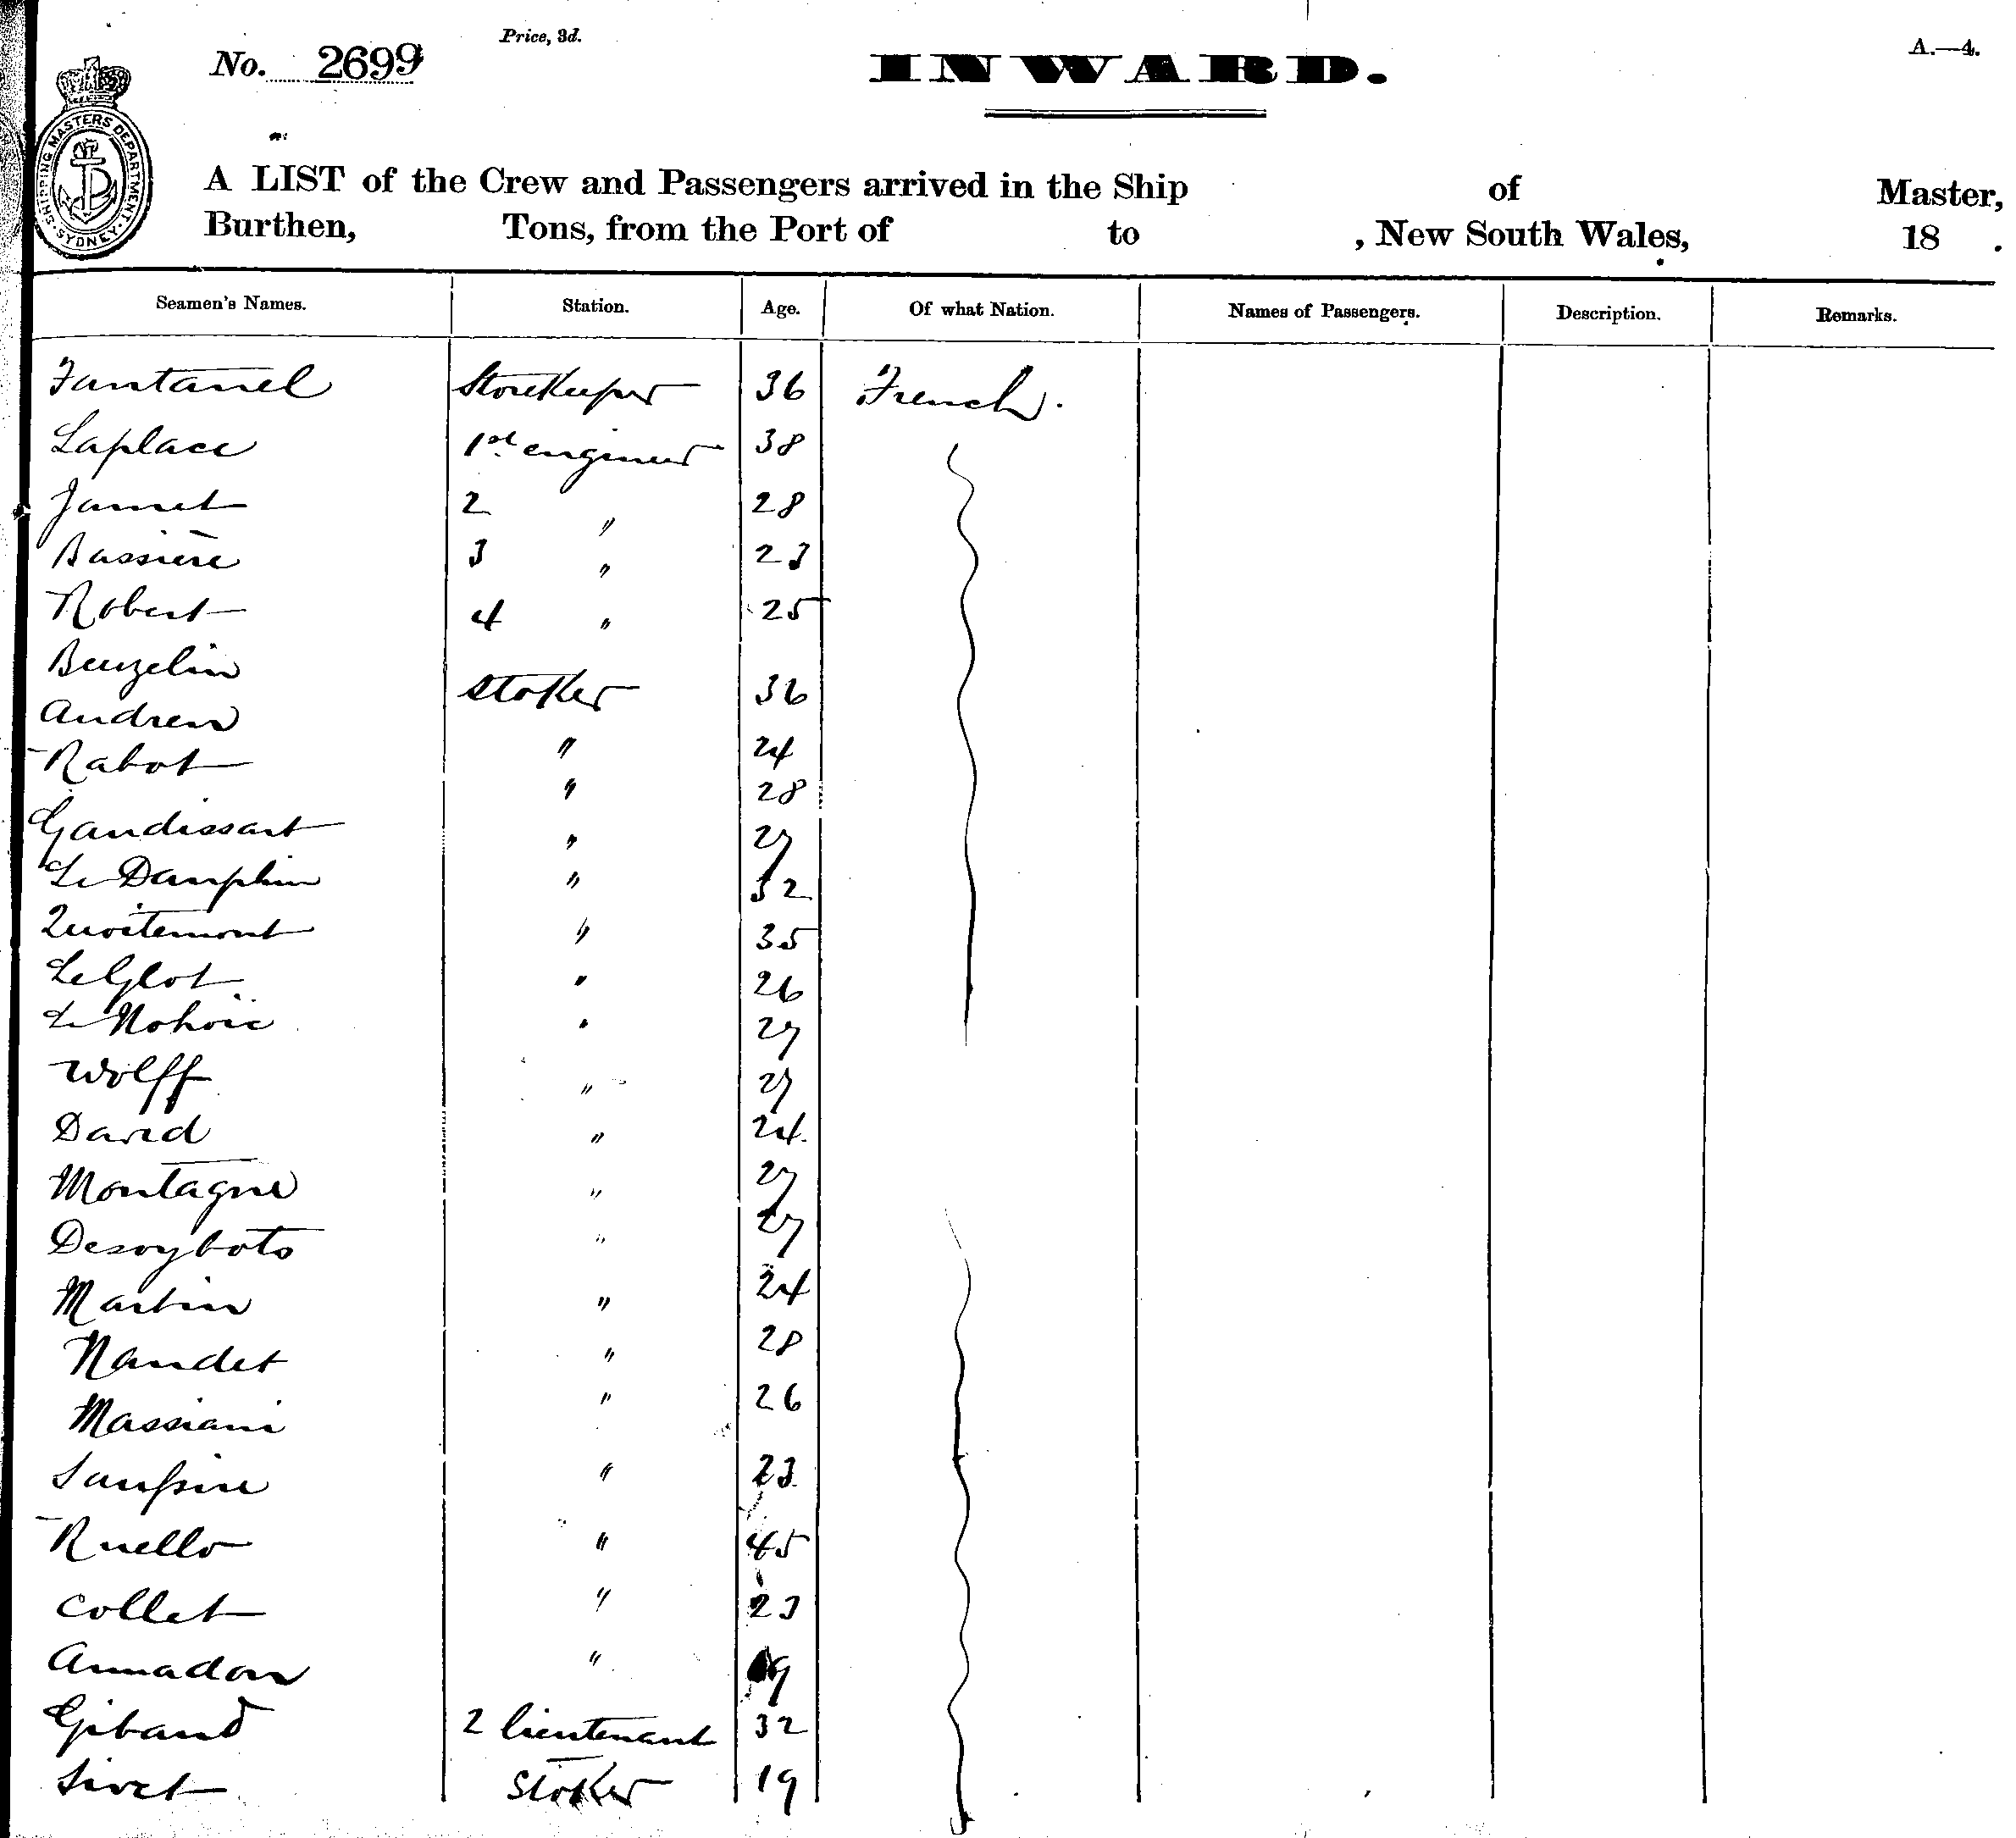 Price, 3d.
No. 2699
INWARD.
A.—4.
SHIPPING MASTERS DEPARTMENT. SYDNEY.
A LIST of the Crew and Passengers arrived in the Ship of Master,
Burthen, Tons, from the Port of to , New South Wales, 18 .
Seamen's Names. Station. Age. Of what Nation. Names of Passengers. Description. Remarks.
Fantanel Storekeeper 36 French.
Laplace 1st engineer 38
Jamet 2 " 28
Bassière 3 " 23
Robert 4 " 25
Beuzelin stoker 36
Andrew " 24
Rabot " 28
Gandissart " 27
Le Dauphin " 32
Quoitemont " 35
Le Glot " 26
Le Nohoic " 27
Wolff " 27
David " 24
Montagne " 27
Desoyboto " 27
Martin " 24
Naudet " 28
Massiani " 26
" 23
Ruello " 45
Collet " 23
Amadon " 19
Giband 2 lieutenant 32
Sivet Stoker 19